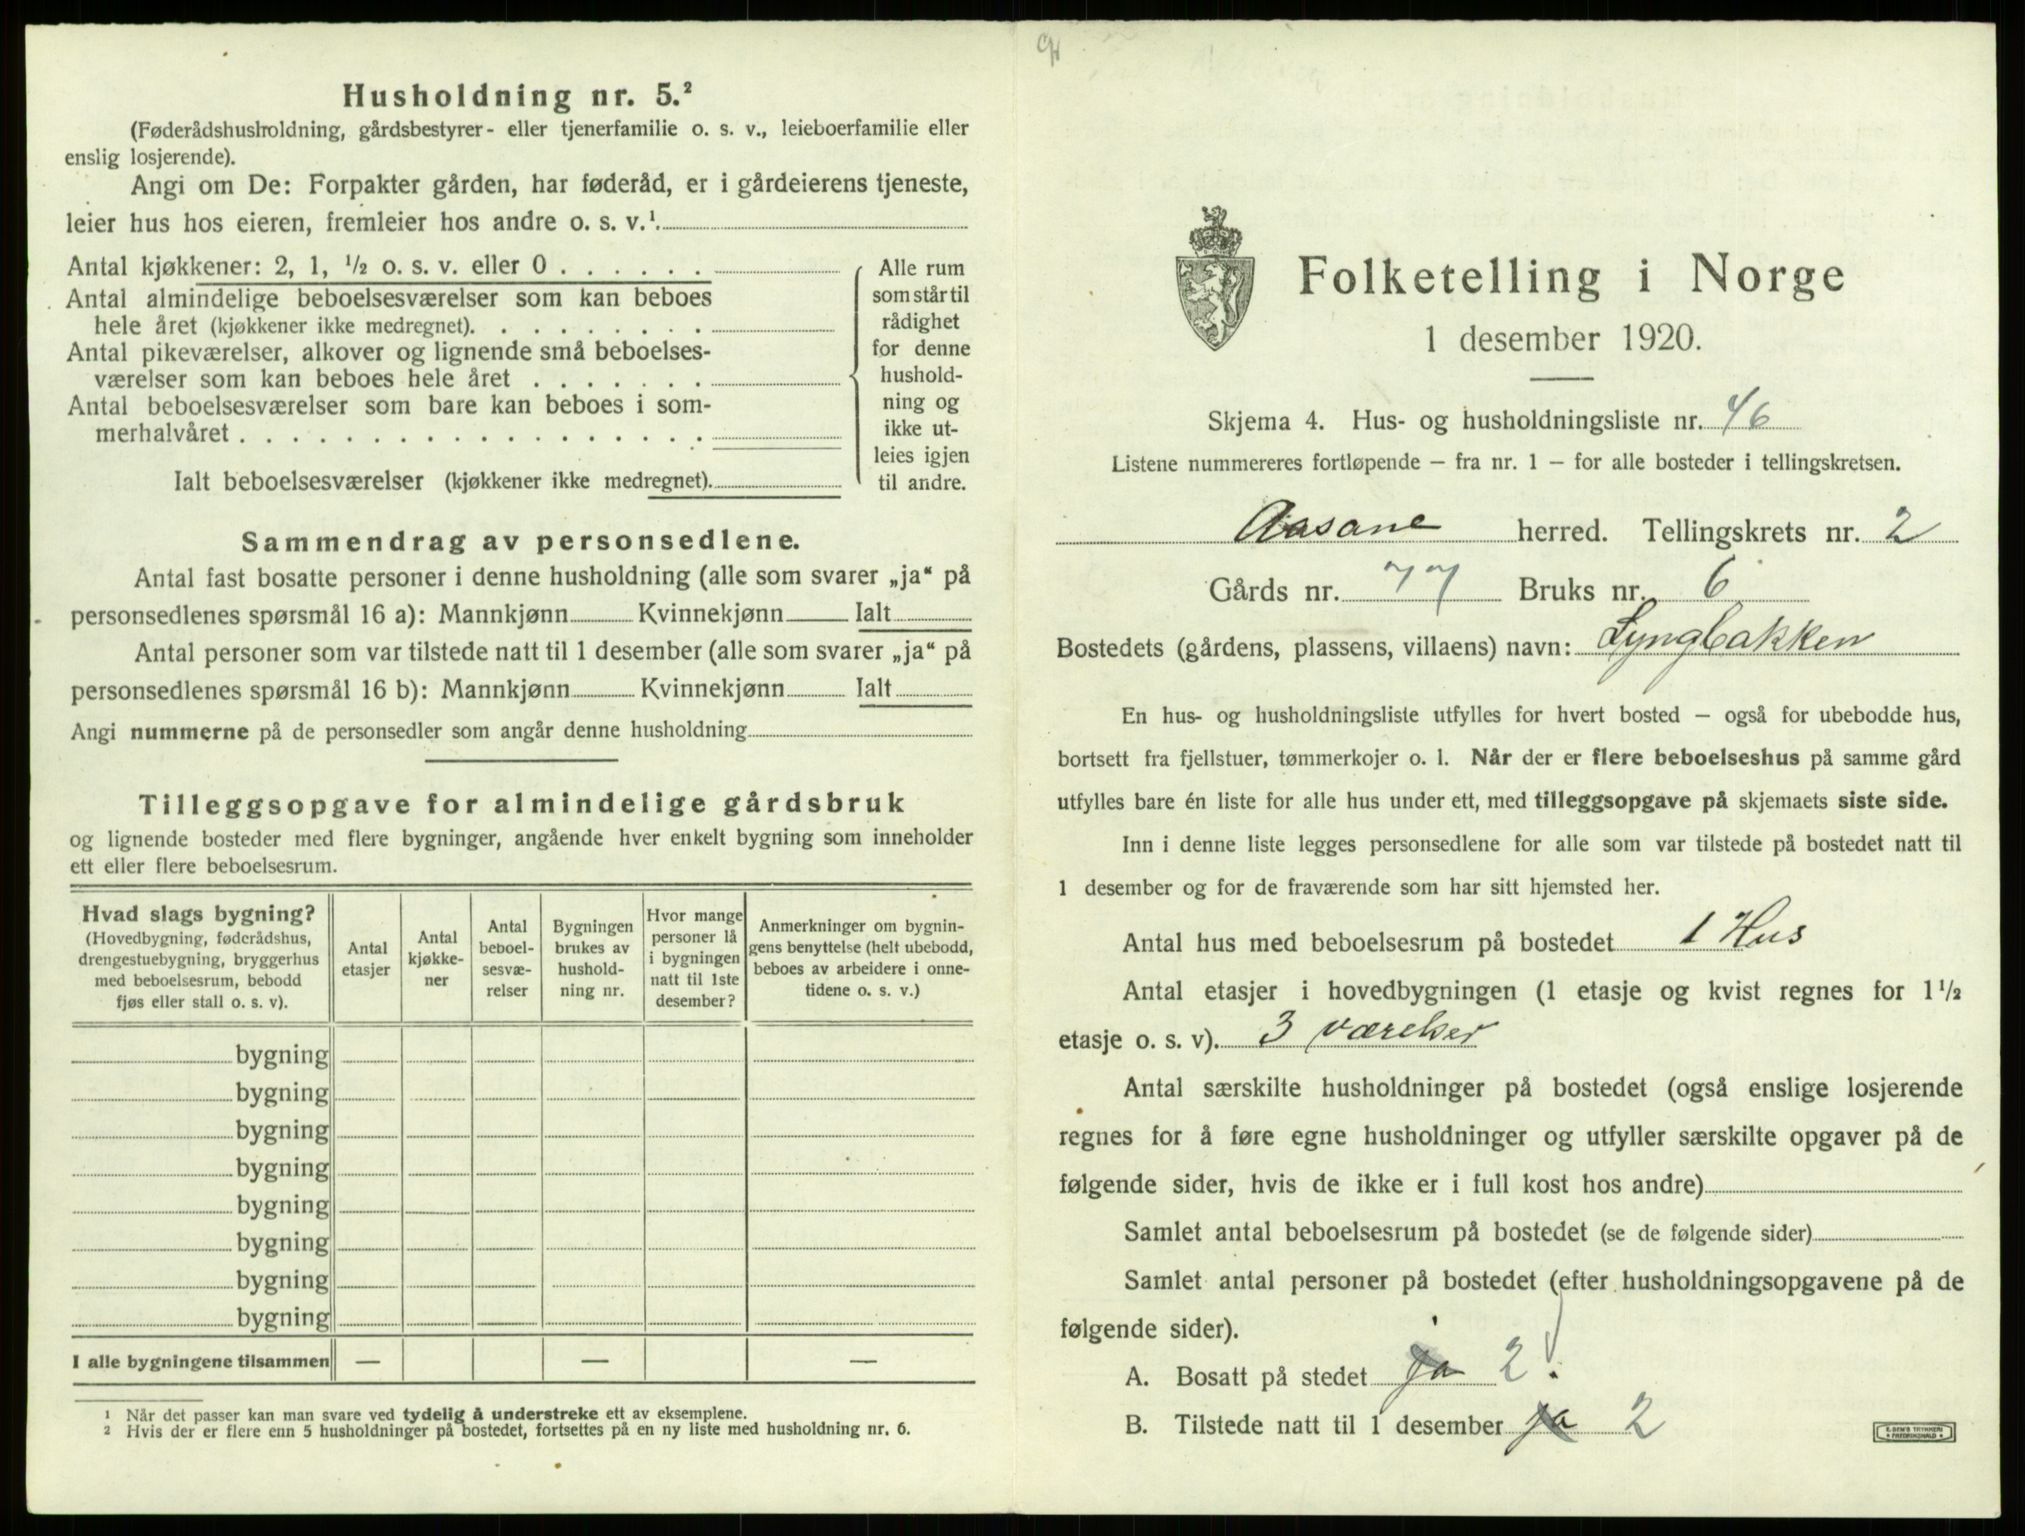 Husholdning nr. 5.²
(Føderådshusholdning, gårdsbestyrer- eller tjenerfamilie o. s. v., leieboerfamilie eller
enslig losjerende).
Angi om De: Forpakter gården, har føderåd, er i gårdeierens tjeneste,
leier hus hos eieren, fremleier hos andre o. s. v.¹.
Antal kjøkkener: 2, 1, ½ o. s. v. eller 0 . . . . . .
Antal almindelige beboelsesværelser som kan beboes
hele året (kjøkkener ikke medregnet). . . . . . . . .
Antal pikeværelser, alkover og lignende små beboelses-
værelser som kan beboes hele året . . . . . . .
Antal beboelsesværelser som bare kan beboes i som-
merhalvåret . . . . . . . . . . . . . . . . . .
Ialt beboelsesværelser (kjøkkener ikke medregnet).
Alle rum
som står til
rådighet
for denne
hushold-
ning og
ikke ut-
leies igjen
til andre.
Sammendrag av personsedlene.
Antal fast bosatte personer i denne husholdning (alle som svarer „ja“ på
personsedlenes spørsmål 16 a): Mannkjønn Kvinnekjønn Ialt
Antal personer som var tilstede natt til 1 desember (alle som svarer „ja“ på
personsedlenes spørsmål 16 b): Mannkjønn Kvinnekjønn Ialt
Angi nummerne på de personsedler som angår denne husholdning
Tilleggsopgave for almindelige gårdsbruk
og lignende bosteder med flere bygninger, angående hver enkelt bygning som inneholder
ett eller flere beboelsesrum.
Hvad slags bygning?
(Hovedbygning, føderådshus,
drengestuebygning, bryggerhus
med beboelsesrum, bebodd
fjøs eller stall o. s. v).
Antal
etasjer
Antal
kjøkke-
ner
Antal
beboel-
sesvæ-
relser
Bygningen
brukes av
hushold-
ning nr.
Hvor mange
personer lå
i bygningen
natt til 1ste
desember?
Anmerkninger om bygnin-
gens benyttelse (helt ubebodd,
beboes av arbeidere i onne-
tidene o. s. v.)
bygning
bygning
bygning
bygning
bygning
bygning
bygning
bygning
I alle bygningene tilsammen — — —
¹ Når det passer kan man svare ved tydelig å understreke ett av eksemplene.
² Hvis der er flere enn 5 husholdninger på bostedet, fortsettes på en ny liste med husholdning nr. 6.
Folketelling i Norge
1 desember 1920.
Skjema 4. Hus- og husholdningsliste nr. 46
Listene nummereres fortløpende – fra nr. 1 – for alle bosteder i tellingskretsen.
Aasane herred. Tellingskrets nr. 2
Gårds nr. 77 Bruks nr. 6
Bostedets (gårdens, plassens, villaens) navn: Lyngbakken
En hus- og husholdningsliste utfylles for hvert bosted – også for ubebodde hus,
bortsett fra fjellstuer, tømmerkojer o. l. Når der er flere beboelseshus på samme gård
utfylles bare én liste for alle hus under ett, med tilleggsopgave på skjemaets siste side.
Inn i denne liste legges personsedlene for alle som var tilstede på bostedet natt til
1 desember og for de fraværende som har sitt hjemsted her.
Antal hus med beboelsesrum på bostedet 1 Hus
Antal etasjer i hovedbygningen (1 etasje og kvist regnes for 1½
etasje o. s. v). 3 værelser
Antal særskilte husholdninger på bostedet (også enslige losjerende
regnes for å føre egne husholdninger og utfyller særskilte opgaver på de
følgende sider, hvis de ikke er i full kost hos andre)
Samlet antal beboelsesrum på bostedet (se de følgende sider)
Samlet antal personer på bostedet (efter husholdningsopgavene på de
følgende sider).
A. Bosatt på stedet ja 2
B. Tilstede natt til 1 desember ja 2